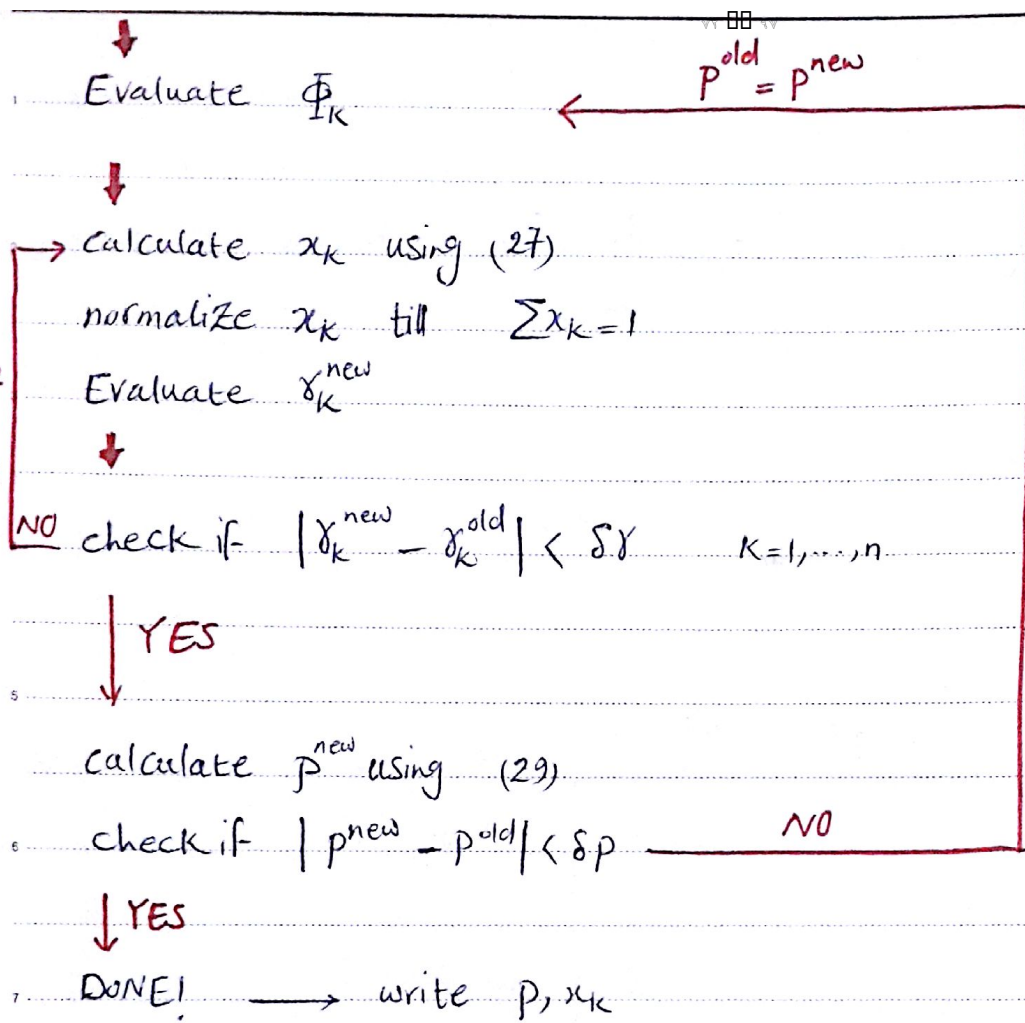 P^old = P^new
Evaluate Φ_K
calculate x_K using (27)
normalize x_K till Σx_K = 1
Evaluate γ_K^new
NO check if |γ_K^new - γ_K^old| < δγ K=1,...,n
YES
calculate P^new using (29)
check if |P^new - P^old| < δP NO
YES
DONE! → write P, x_K